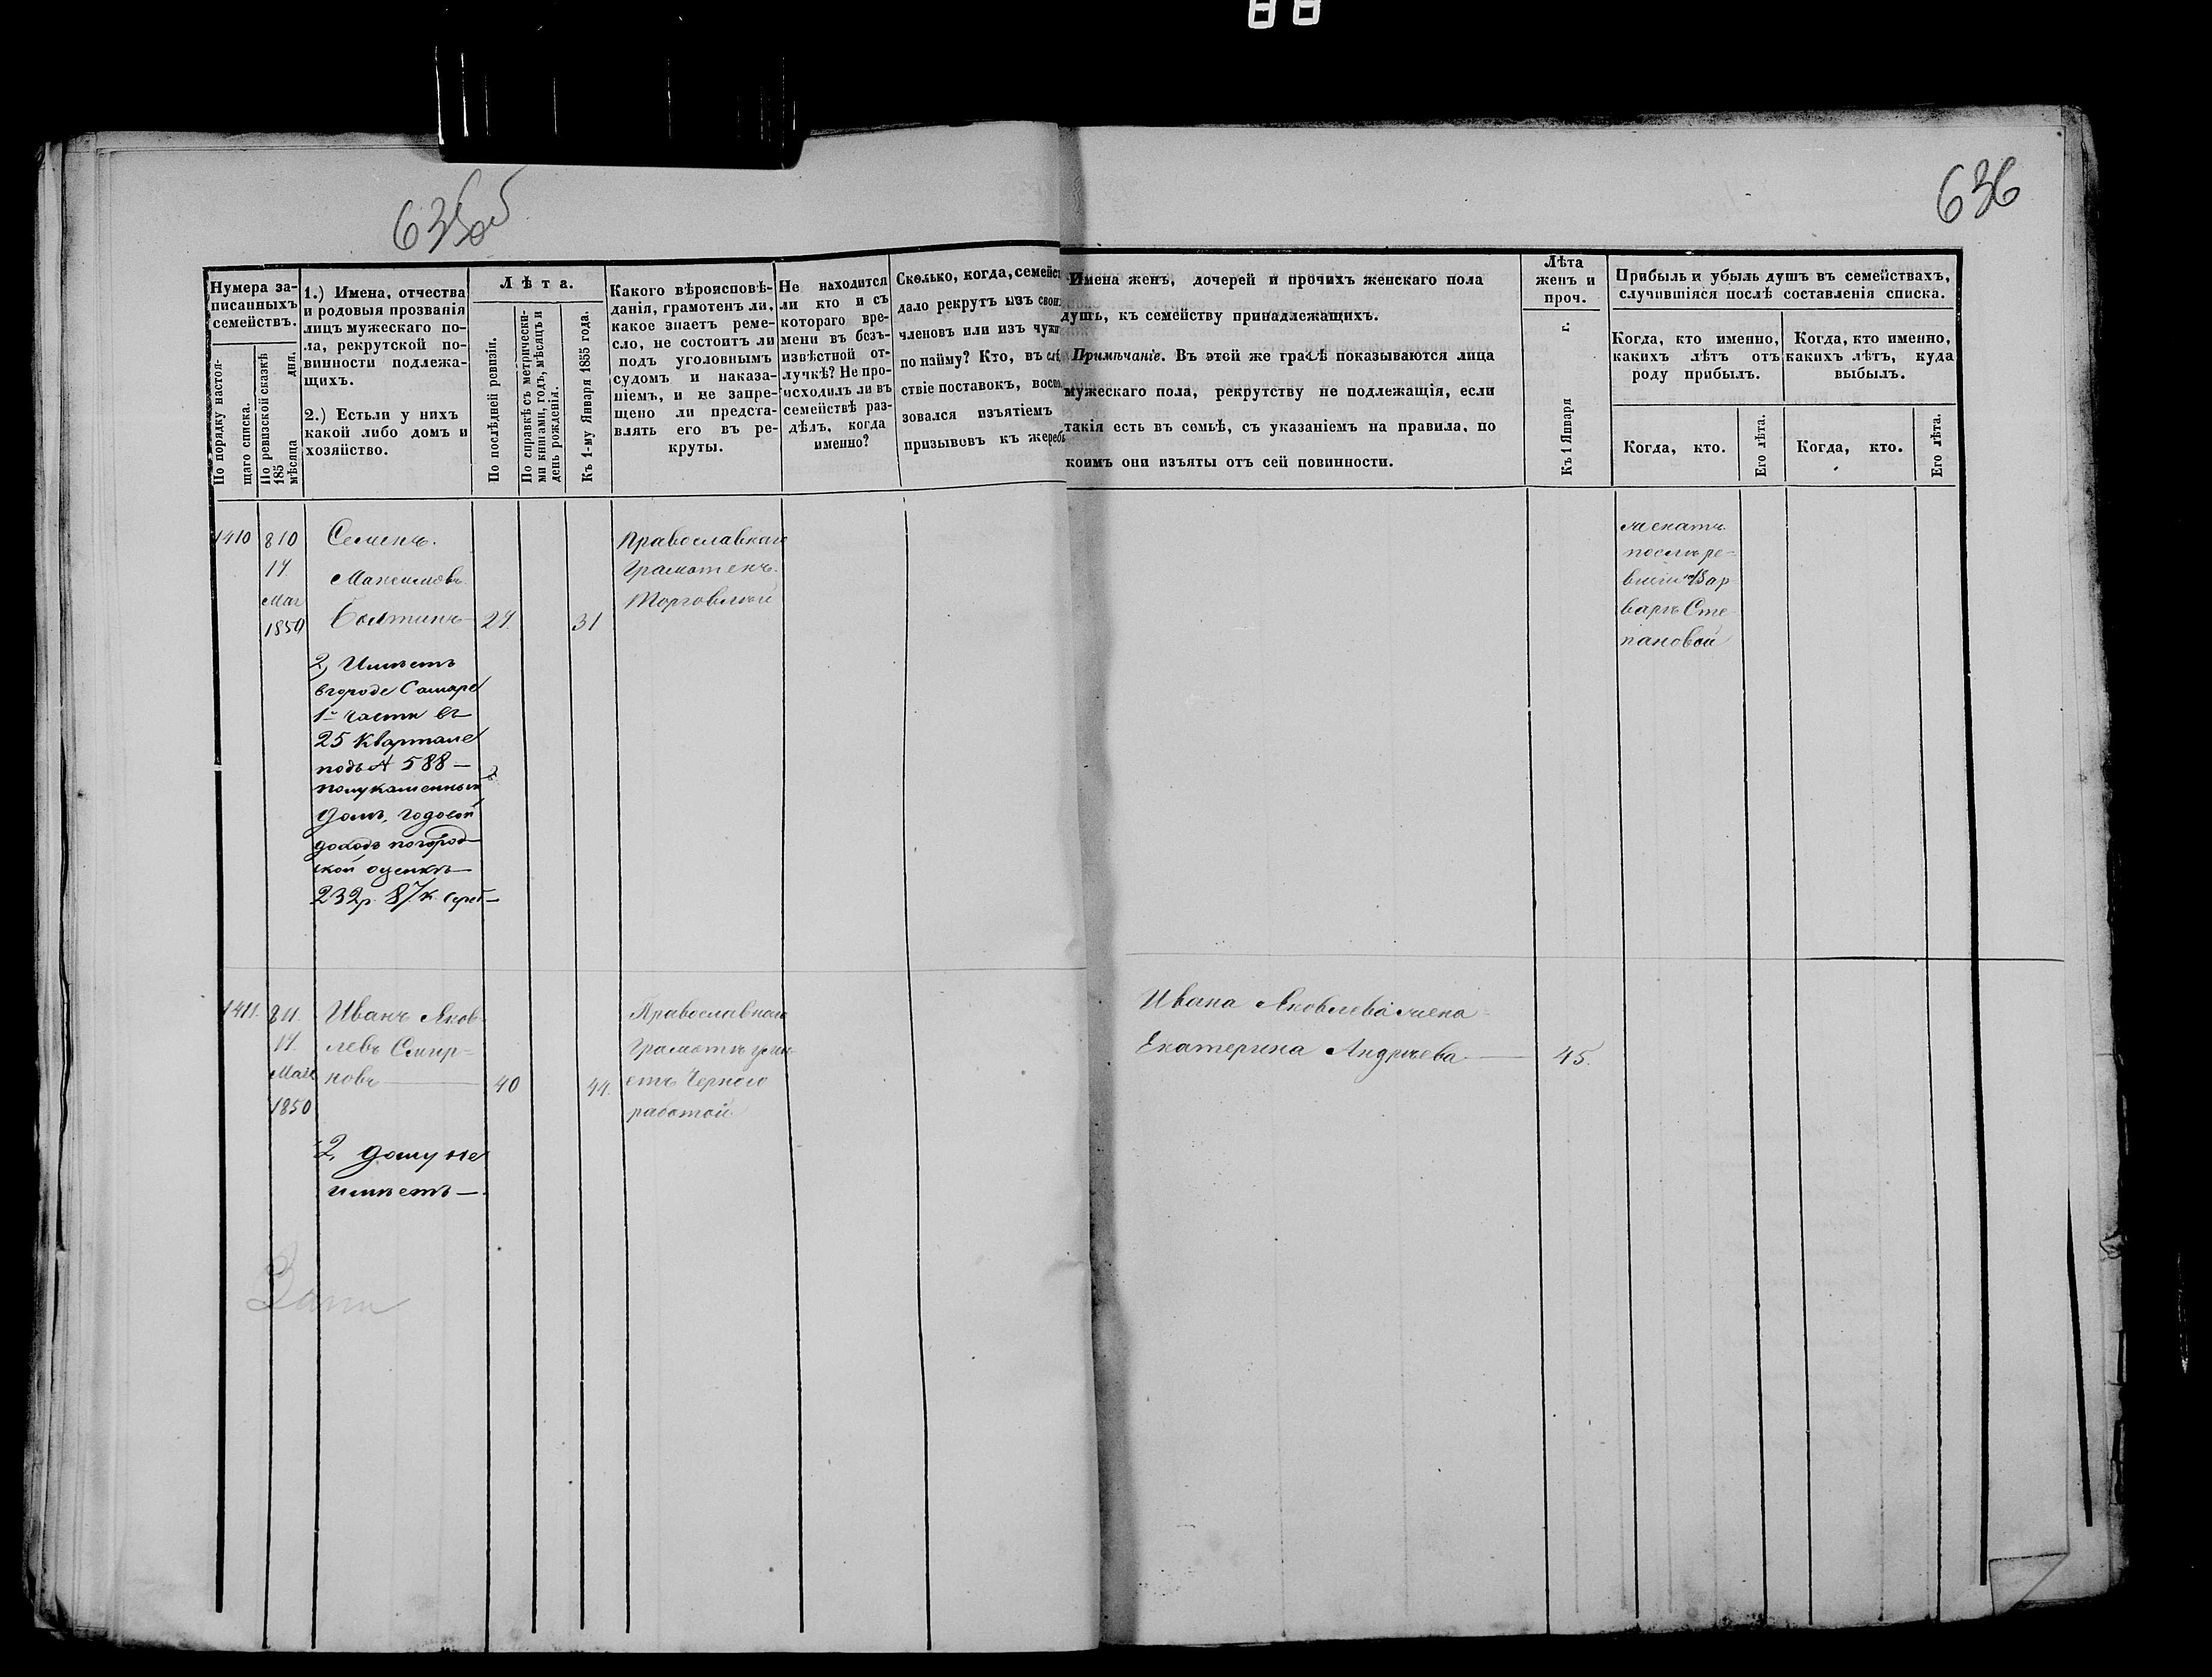 88
635об
636
Нумера за-
писанныхъ
семействъ.
По порядку настоя-
щаго списка.
По ревизской сказкѣ
185
мѣсяца дня.
1.) Имена, отчества
и родовыя прозванія
лицъ мужескаго по-
ла, рекрутской по-
винности подлежа-
щихъ.
2.) Естьли у нихъ
какой либо домъ и
хозяйство.
Лѣта.
По послѣдней ревизіи.
По справкѣ съ метрически-
ми книгами, годъ, мѣсяцъ и
день рожденія.
Къ 1-му Января 1855 года.
Какого вѣроисповѣ-
данія, грамотенъ ли,
какое знаетъ реме-
сло, не состоитъ ли
подъ уголовнымъ
судомъ и наказа-
ніемъ, и не запре-
щено ли предста-
влять его въ ре-
круты.
Не находится
ли кто и съ
котораго вре-
мени въ безъ-
извѣстной от-
лучкѣ? Не про-
исходилъ ли въ
семействѣ раз-
дѣлъ, когда
именно?
Сколько, когда, семейст
дало рекрутъ изъ свои
членовъ или изъ чужи
по найму? Кто, въ слѣ
ствіе поставокъ, воспо
зовался изъятіемъ
призывовъ къ жереб
Имена женъ, дочерей и прочихъ женскаго пола
душъ, къ семейству принадлежащихъ.
Примѣчаніе. Въ этой же графѣ показываются лица
мужескаго пола, рекрутству не подлежащія, если
такія есть въ семьѣ, съ указаніемъ на правила, по
коимъ они изъяты отъ сей повинности.
Лѣта
женъ и
проч.
Къ 1 Января г.
Прибыль и убыль душъ въ семействахъ,
случившіяся послѣ составленія списка.
Когда, кто именно,
какихъ лѣтъ отъ
роду прибылъ.
Когда, кто именно,
какихъ лѣтъ, куда
выбылъ.
Когда, кто.
Его лѣта.
Когда, кто.
Его лѣта.
1410
810
14
Мая
1850
Семенъ.
Максимовъ
Болтинъ 27. 31
2, Имѣетъ
вгороде Самаре
1й части въ
25 Квартале
подъ № 588
полукаменный
домъ, годовой
доходъ погород
ской оценкѣ
232р. 87к. сереб
Православнаго
Грамотенъ.
Торговлей
женатъ
послѣ ре-
визіи на Вар
варѣ Сте
пановой
1411.
811.
14.
Мая
1850
Иванъ Яков-
левъ Смир-
новъ 40 44.
2, дому не
имѣетъ
Православнаго
Грамотѣ умѣ
етъ Черного
работой.
Ивана Яковлева жена
Екатерина Андрѣева 45.